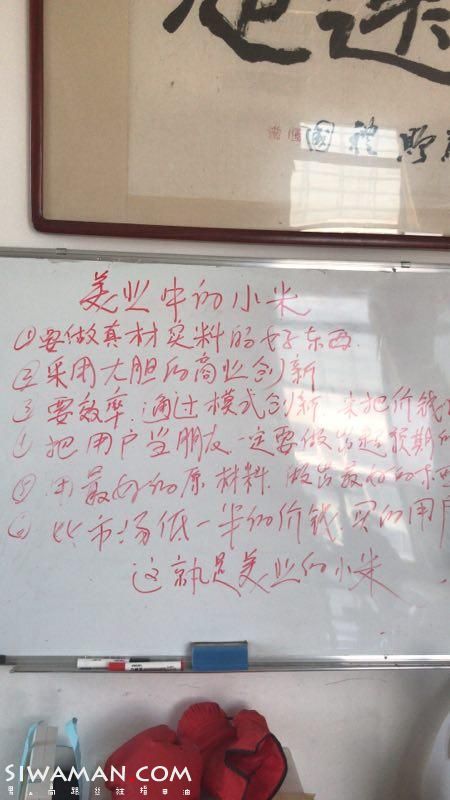 國禮
美业中的小米
①要做真材实料的好东西.
②采用大胆的商业创新
③要效率.通过模式创新.来把价钱
把用户当朋友.一定要做出超预期的
用最好的原材料.做出最好的东西
⑥比市场低一半的价钱.买的用户
这就是美业的小米
SIWAMAN.COM